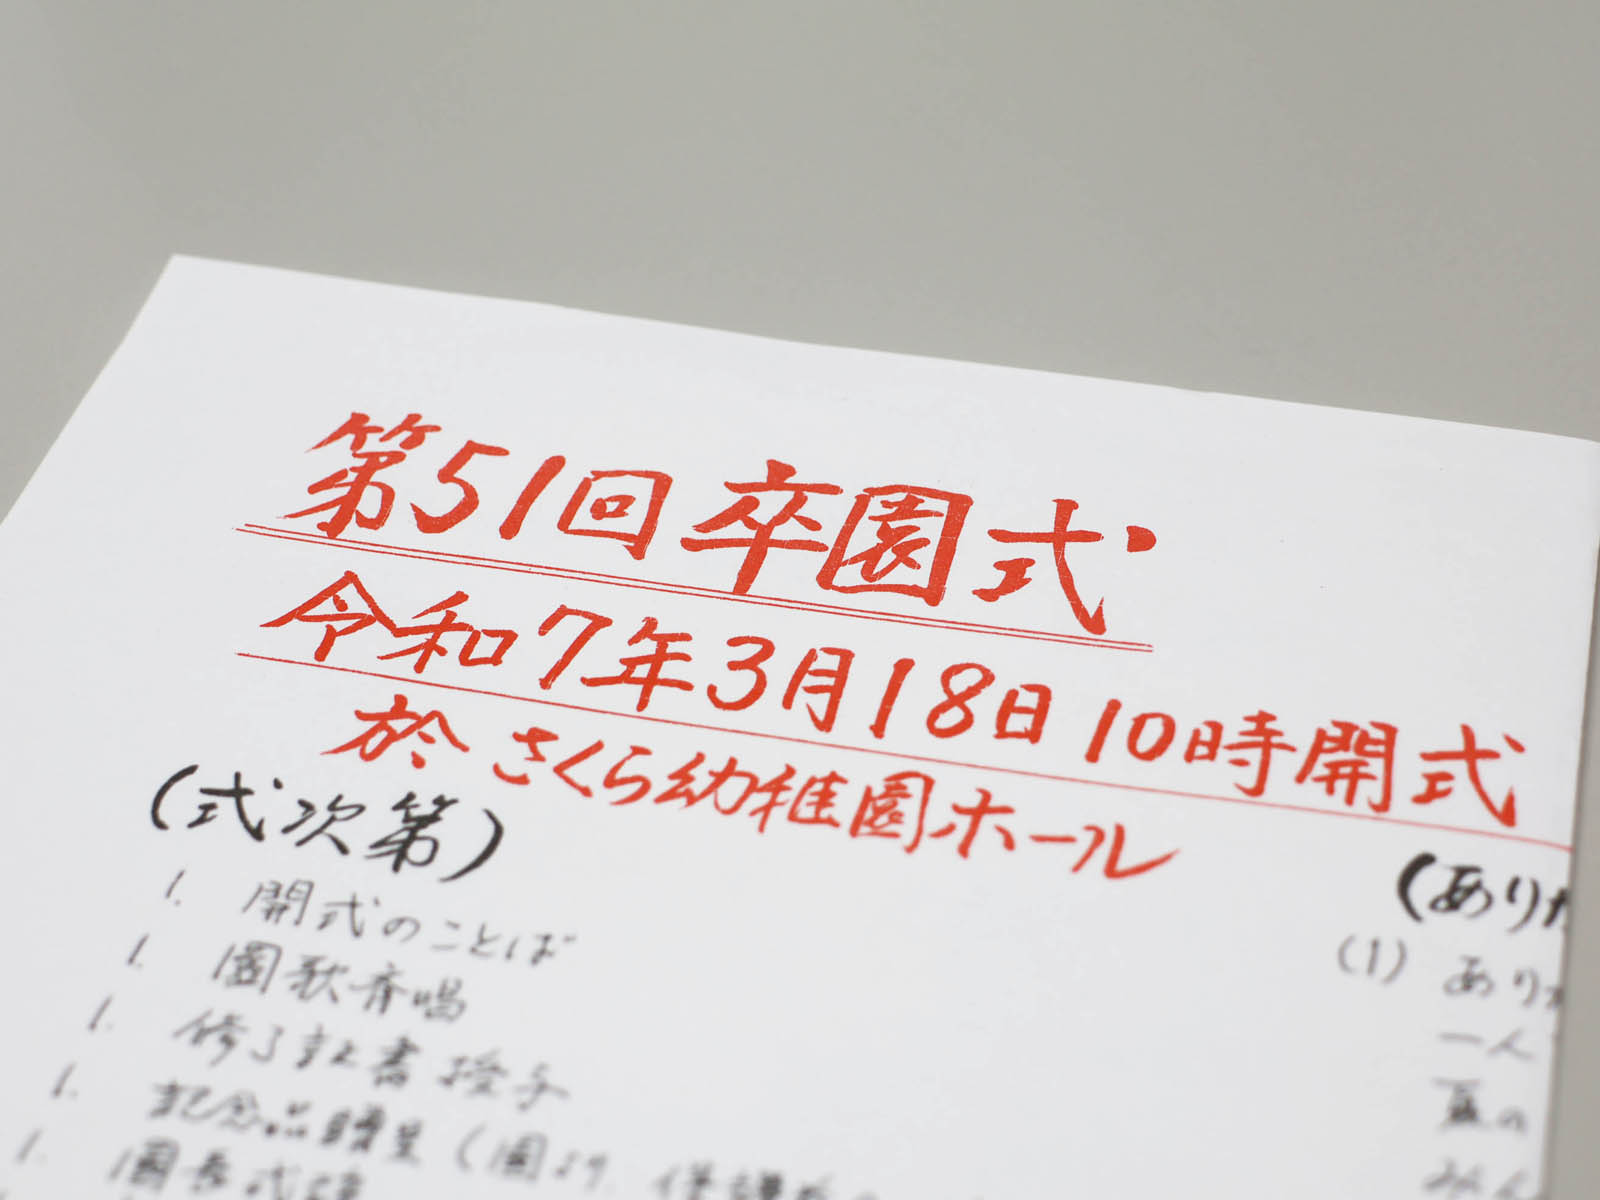 第51回 卒園式
令和7年3月18日 10時開式
於 さくら幼稚園ホール
(式次第)
1. 開式のことば
1. 園歌斉唱
1. 修了証書授与
1. 記念品贈呈(園より、保護者
1. 園長式辞
(ありが
(1) あり
一人
夏の
みん